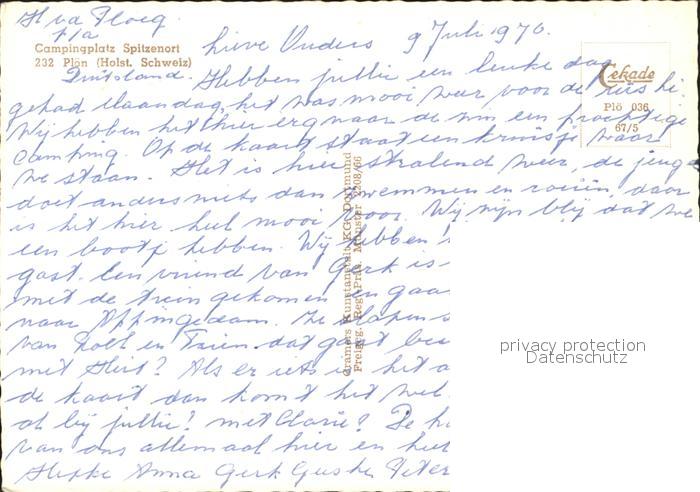 H vd Ploeg.
p/a
Campingplatz Spitzenort
232 Plön (Holst. Schweiz)
Duitsland.
Lieve Ouders 9 Juli 1970.
Hebben jullie een leuke dag
gehad Maandag, het was mooi weer voor de reis hè.
Wij hebben het hier erg naar de zin een prachtige
camping. Op de kaart staat een kruisje waar
we staan. Het is hier stralend weer, de jeugd
doet anders niets dan zwemmen en roeien, daar
is het hier heel mooi voor. Wij zijn blij dat we
een bootje hebben. Wij hebben
gast. Een vriend van Gerk is
met de trein gekomen en gaa
naar Appingedam. Ze slapen
van Roelt en Trien. dat gaat
met Hist? Als er iets is het a
de kaart dan komt het wel
al bij jullie? met Clarie? De
van ons allemaal hier en
Anna Gerk Peter
Cekade
Plö 036
67/5
Cramers Kunstanstalt KG. Dortmund
Freigeg. Reg.-Präs. Münster 2208/66
privacy protection
Datenschutz